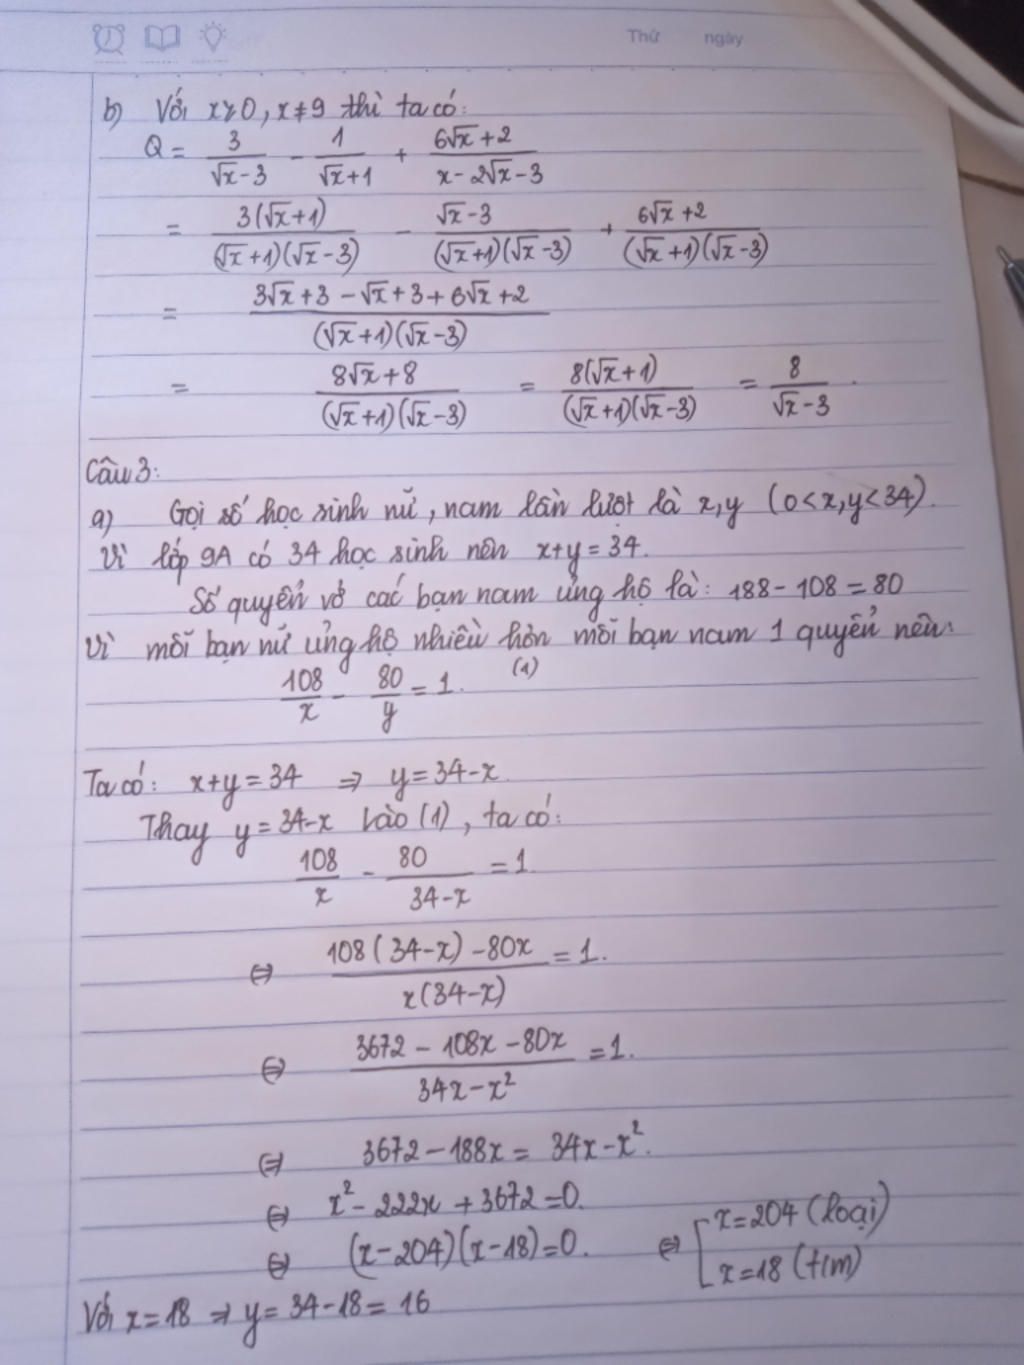 Thứ ngày
b) Với x≥0, x≠9 thì ta có:
Q = 3/(√x-3) - 1/(√x+1) + (6√x+2)/(x-2√x-3)
= 3(√x+1)/((√x+1)(√x-3)) - (√x-3)/((√x+1)(√x-3)) + (6√x+2)/((√x+1)(√x-3))
= (3√x+3-√x+3+6√x+2)/((√x+1)(√x-3))
= (8√x+8)/((√x+1)(√x-3)) = 8(√x+1)/((√x+1)(√x-3)) = 8/(√x-3).
Câu 3:
a) Gọi số học sinh nữ, nam lần lượt là x,y (0<x,y<34).
Vì lớp 9A có 34 học sinh nên x+y=34.
Số quyển vở các bạn nam ủng hộ là: 188-108=80
Vì mỗi bạn nữ ủng hộ nhiều hơn mỗi bạn nam 1 quyển nên:
108/x - 80/y = 1. (1)
Ta có: x+y=34 ⇒ y=34-x
Thay y=34-x vào (1), ta có:
108/x - 80/(34-x) = 1
⇔ (108(34-x)-80x)/(x(34-x)) = 1.
⇔ (3672-108x-80x)/(34x-x²) = 1.
⇔ 3672-188x = 34x-x².
⇔ x²-222x+3672=0.
⇔ (x-204)(x-18)=0. ⇔ [x=204 (loại)
x=18 (t/m)
Với x=18 ⇒ y=34-18=16